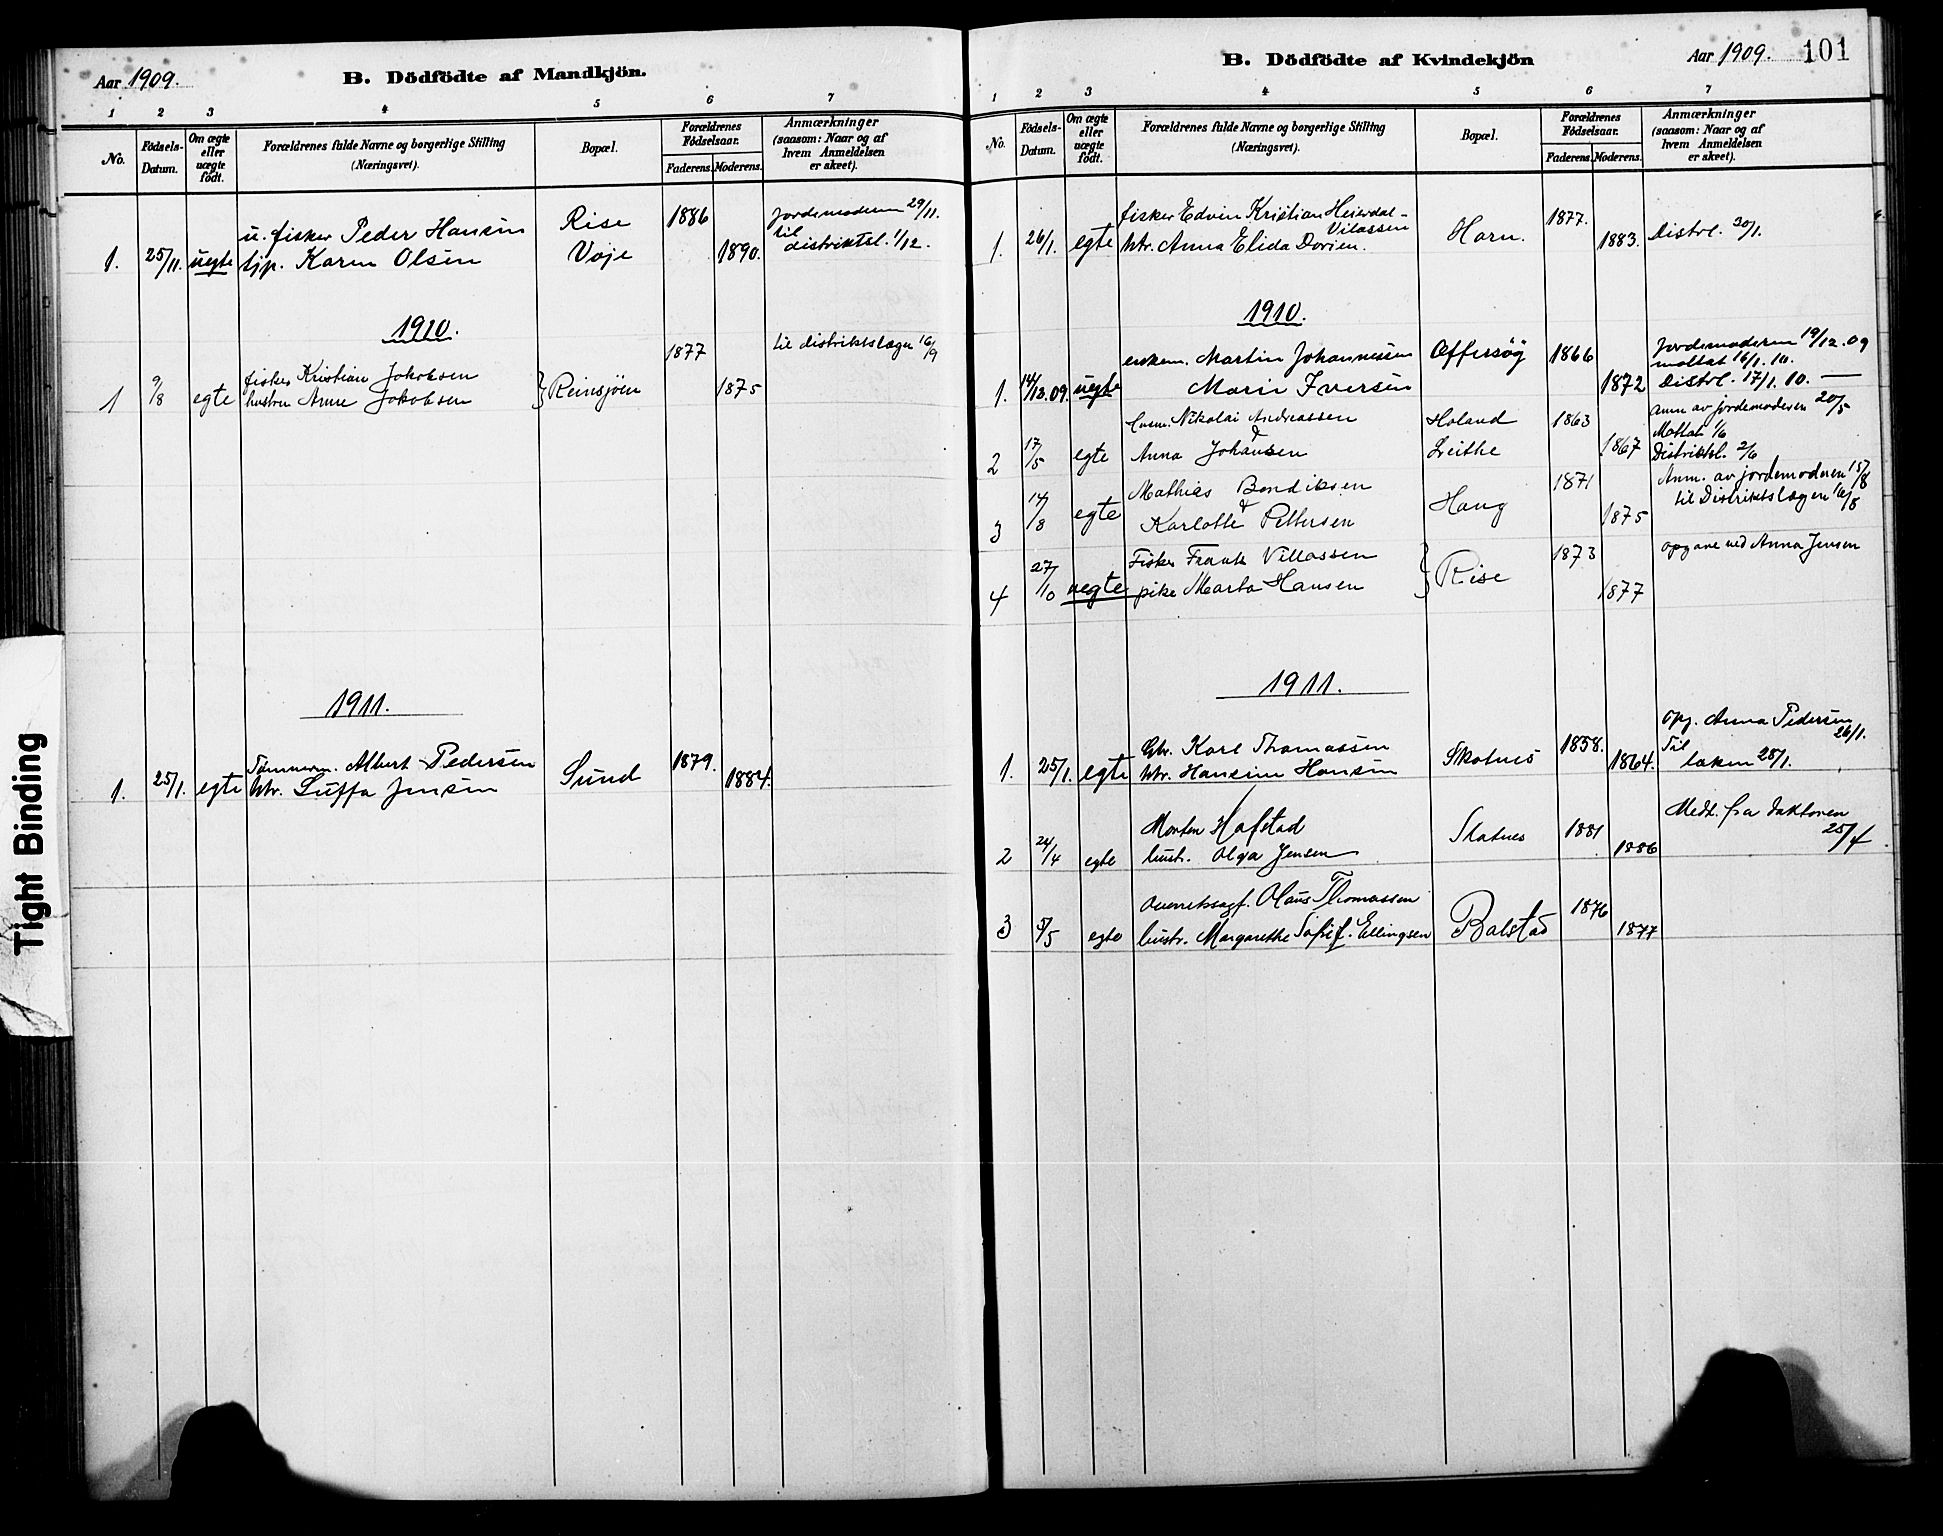 Aar 1909.
B. Dödfödte af Mandkjön.
1 2 3 4 5 6 7
No.
Födsels-Datum.
Om ægte eller uægte födt.
Forældrenes fulde Navne og borgerlige Stilling (Næringsvei).
Bopæl.
Forældrenes Födselsaar.
Faderens. Moderens.
Anmærkninger (saasom: Naar og af hvem Anmeldelsen er skeet).
u. fisker Peder Hansen Rise 1886 Jordemoderen 29/11.
1. 25/11. uegte tjp. Karen Olsen Voje 1890. til distriktsl. 1/12.
1910.
fisker Kristian Jakobsen 1877 til distriktslægen 16/9
1 9/8 egte hustru Anne Jakobsen } Reinsjøen 1875
1911.
Tømmerm. Albert Pedersen 1879.
1. 25/1. egte htr. Luffa Jensen Sund 1884.
Tight Binding
B. Dödfödte af Kvindekjön
Aar 1909. 101
1 2 3 4 5 6 7
No.
Födsels-Datum.
Om ægte eller uægte födt.
Forældrenes fulde Navne og borgerlige Stilling (Næringsvei).
Bopæl.
Forældrenes Födselsaar.
Faderens. Moderens.
Anmærkninger (saasom: Naar og af hvem Anmeldelsen er skeet).
fisker Edvin Kristian Heierdal-Vilassen 1877.
1. 26/1. egte htr. Anna Elida Dorien. Horn. 1883. Distrl. 30/1.
1910.
enkem. Martin Johannessen Offersøg 1866 Jordemoderen 19/12.09
mottat 16/1.10.
1. 14/12.09. uegte Marie Iversen 1872 Distrl. 17/1.10. —
Nikolai Andreassen Holand 1863 Anm av jordemoderen 20/5
& Mottat 1/6
2 17/5 egte Anna Johansen Leitke 1867 Distriktsl. 2/6
Mathias Bendiksen 1871 Anm. av jordemoderen 15/8
3 14/8 egte & Karlotte Pettersen Haug 1875 til Distriktslægen 16/8
Fisker Frants Villassen 1873 opgave ved Anna Jensen
4 27/10 uegte pike Marta Hansen } Rise 1877
1911.
Gbr. Karl Thomassen 1858. opg. Anna Pedersen 26/1.
1. 25/1. egte htr. Hansine Hansen Skotnes 1864. Til læken 28/1.
Morten Hofstad 1881 Medt. fra doktoren 25/4
2 24/4 egte hustr. Olga Jensen Skotnes 1886
Overretssagf. Olaus Thomassen 1876
3 5/5 egte hustr. Margarethe Sofie f. Ellingsen Balstad 1877